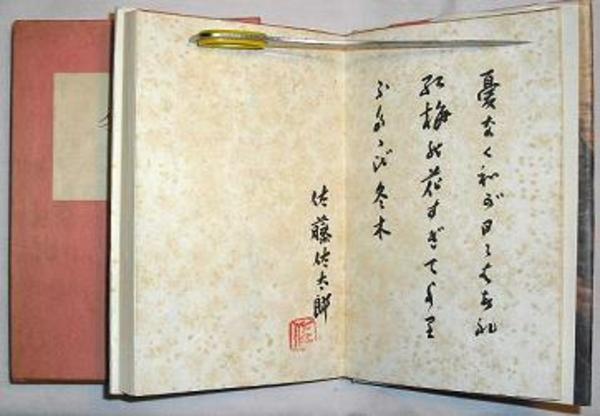 憂なくわが日々はあれ
紅梅の花すぎてより
ふたゝび冬木
佐藤佐太郎